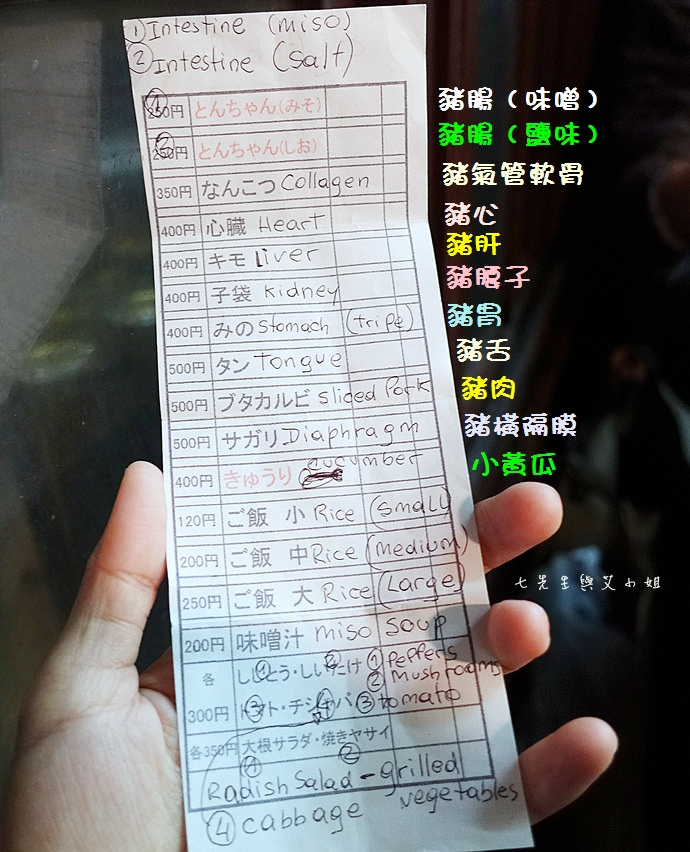 ① Intestine (miso)
② Intestine (salt)
① 250円 とんちゃん(みそ) 豬腸(味噌)
② 250円 とんちゃん(しお) 豬腸(鹽味)
350円 なんこつ Collagen 豬氣管軟骨
400円 心臓 Heart 豬心
400円 キモ Liver 豬肝
400円 子袋 Kidney 豬腰子
400円 みの Stomach (tripe) 豬胃
500円 タン Tongue 豬舌
500円 ブタカルビ Sliced Pork 豬肉
500円 サガリ Diaphragm 豬橫隔膜
400円 きゅうり cucumber 小黃瓜
120円 ご飯 小 Rice (Small)
200円 ご飯 中 Rice (medium)
250円 ご飯 大 Rice (Large)
200円 味噌汁 miso soup
各 ししとう・しいたけ ① Peppers
② Mushrooms
300円 トマト・チシャバ ③ tomato
各350円 大根サラダ・焼きヤサイ
Radish Salad - grilled
④ cabbage vegetables
七先生與艾小姐